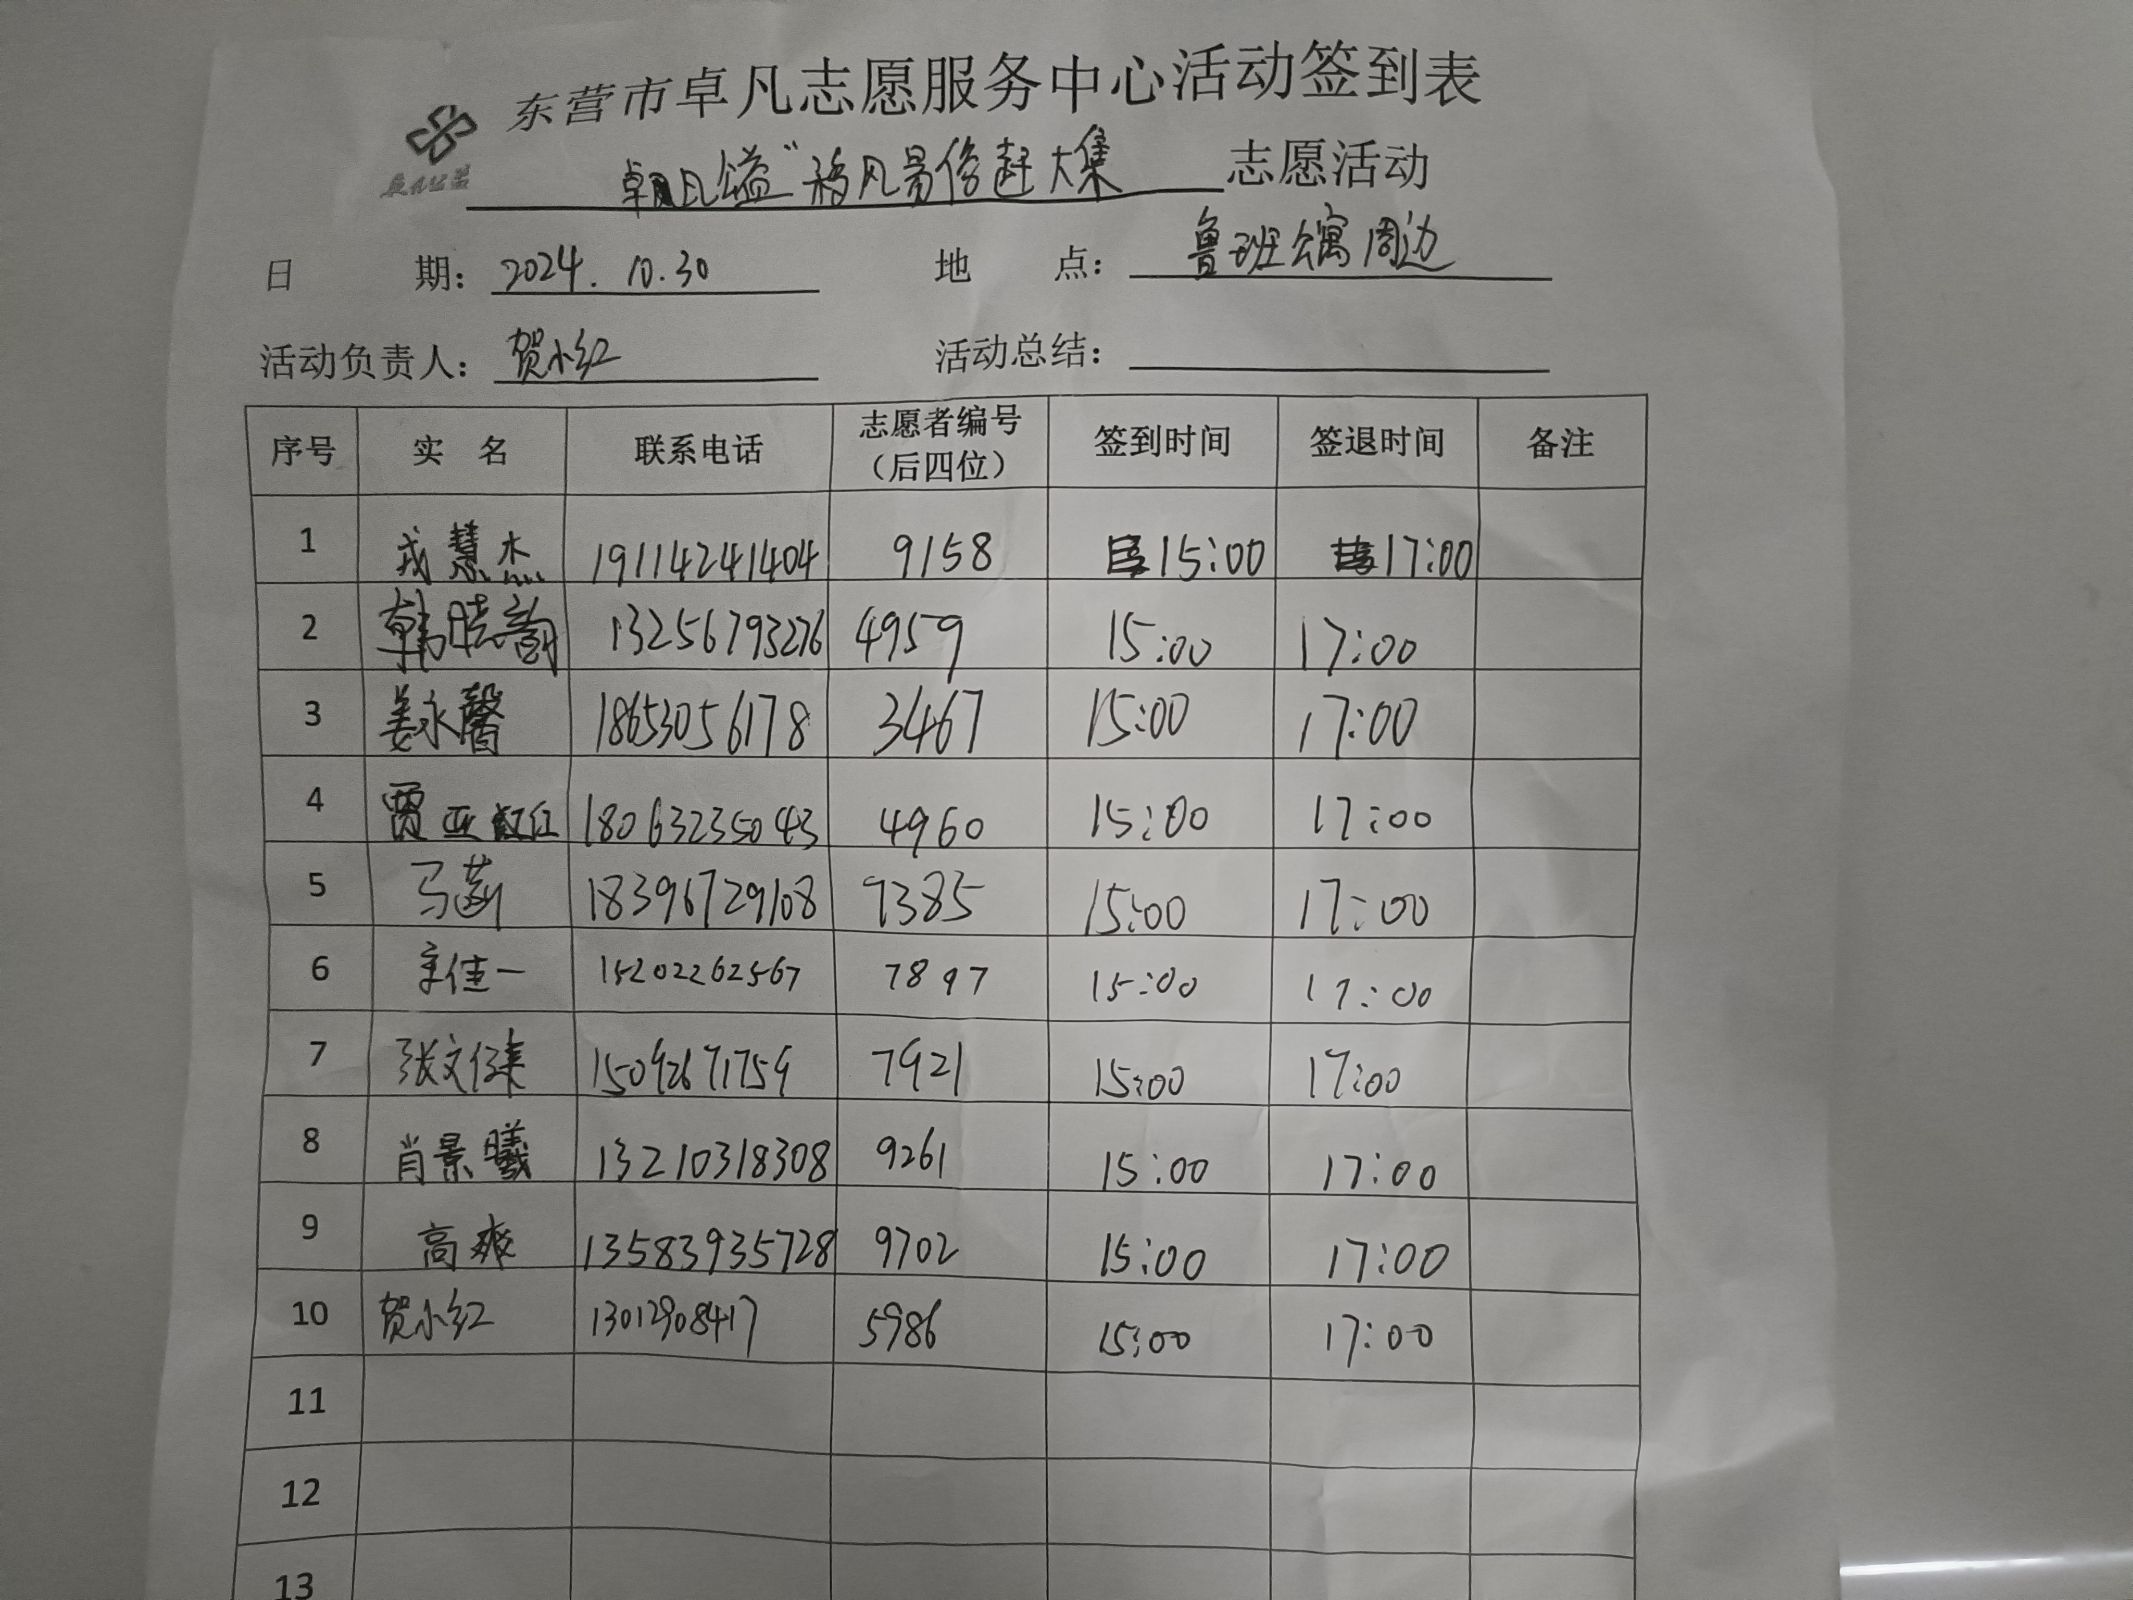 东营市卓凡志愿服务中心活动签到表
卓凡公益
卓凡公益"移风易俗赶大集 志愿活动
日 期： 2024.10.30 地 点： 鲁班公寓周边
活动负责人： 贺小红 活动总结：
序号 实 名 联系电话 志愿者编号（后四位） 签到时间 签退时间 备注
1 戎慧杰 19114241404 9158 15:00 17:00
2 韩晓韵 13256793276 4959 15:00 17:00
3 姜永馨 18653056178 3467 15:00 17:00
4 贾亚红 18063235043 4960 15:00 17:00
5 马 18396729108 9385 15:00 17:00
6 佳一 15202262567 7897 15:00 17:00
7 张文 15092671759 7921 15:00 17:00
8 肖景曦 13210318308 9261 15:00 17:00
9 高爽 13583935728 9702 15:00 17:00
10 贺小红 13012908417 5986 15:00 17:00
11
12
13